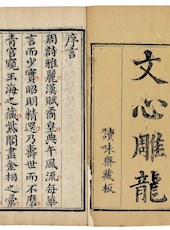 文心雕龍
讀味齋藏板
序言
周詩雅麗漢賦喬皇典午風流每華
言而少實昭明精選乃壽世而不磨
青宮窺玉海之藏紫閣畫金相之彙